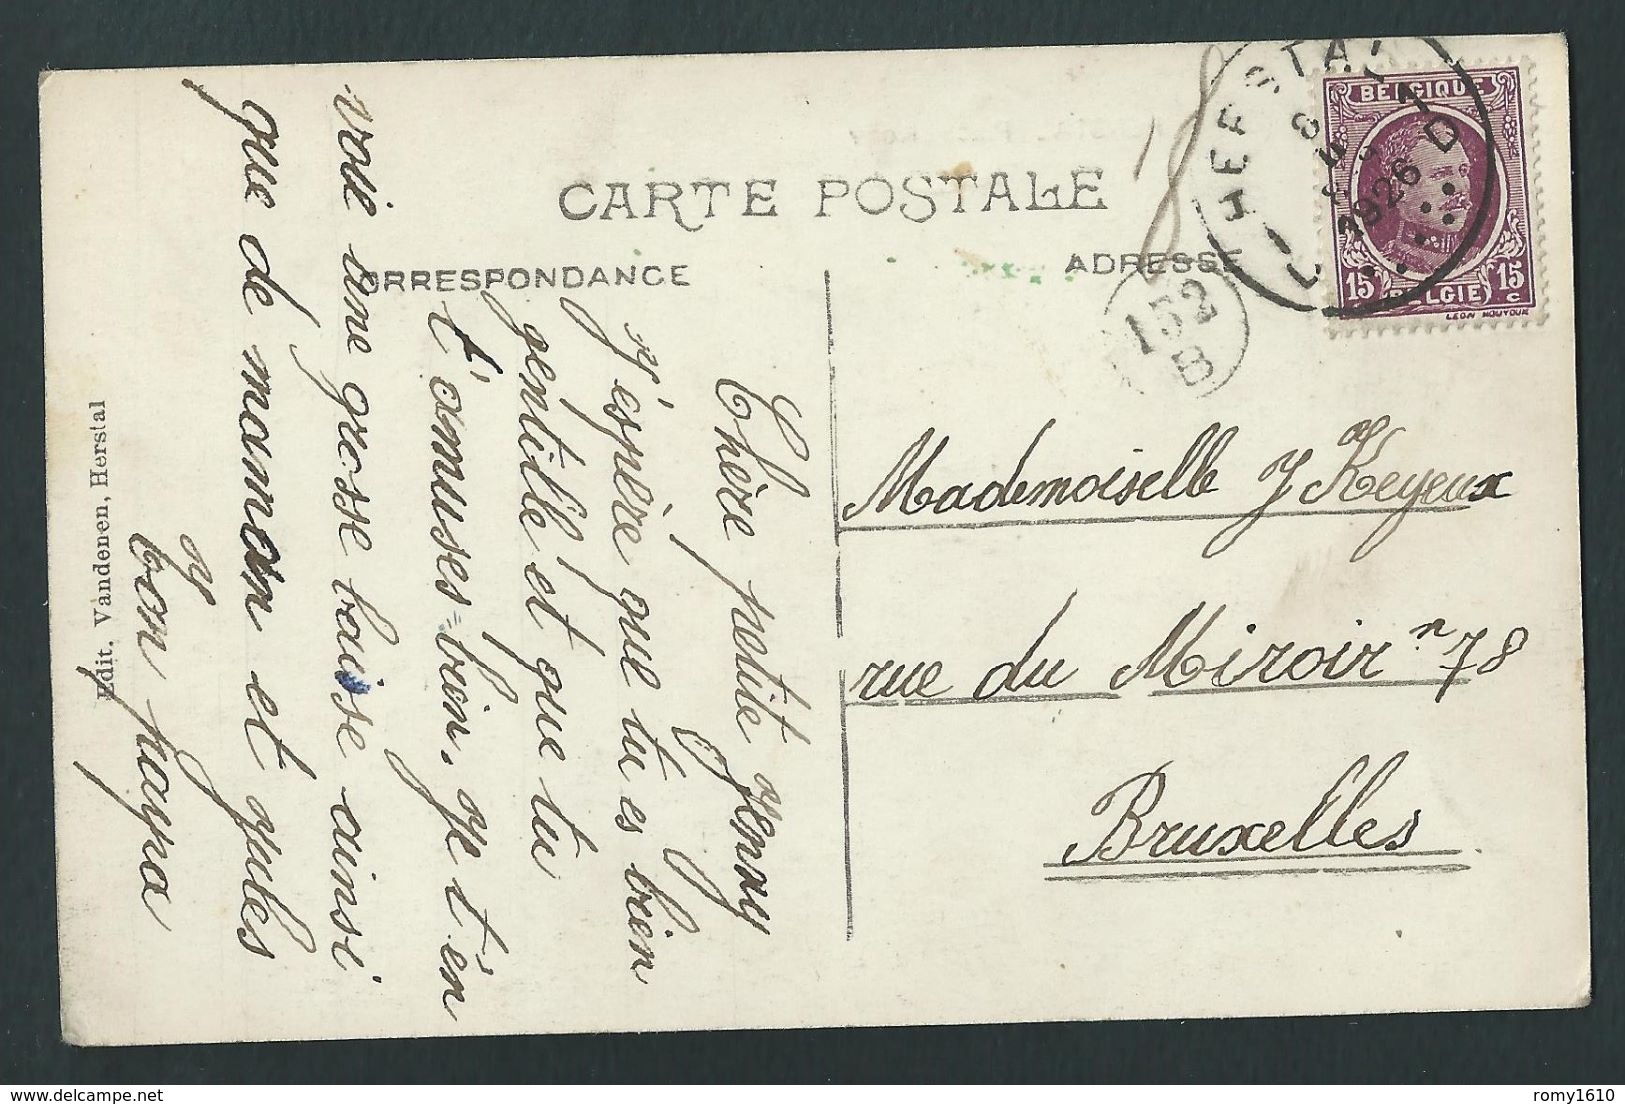 CARTE POSTALE
CORRESPONDANCE
ADRESSE
Chère petite Jenny
J'espère que tu es bien
gentille et que tu
t'amuses bien. Je t'en
voie une grosse baisse ainsi
que de maman et Jules
Ton papa
Edit. Vandenen, Herstal
HERSTAL
1926
D
152
B
BELGIQUE
15 BELGIE 15 c
Mademoiselle J Keyeux
rue du Miroir n 78
Bruxelles
delcampe.net
romy1610